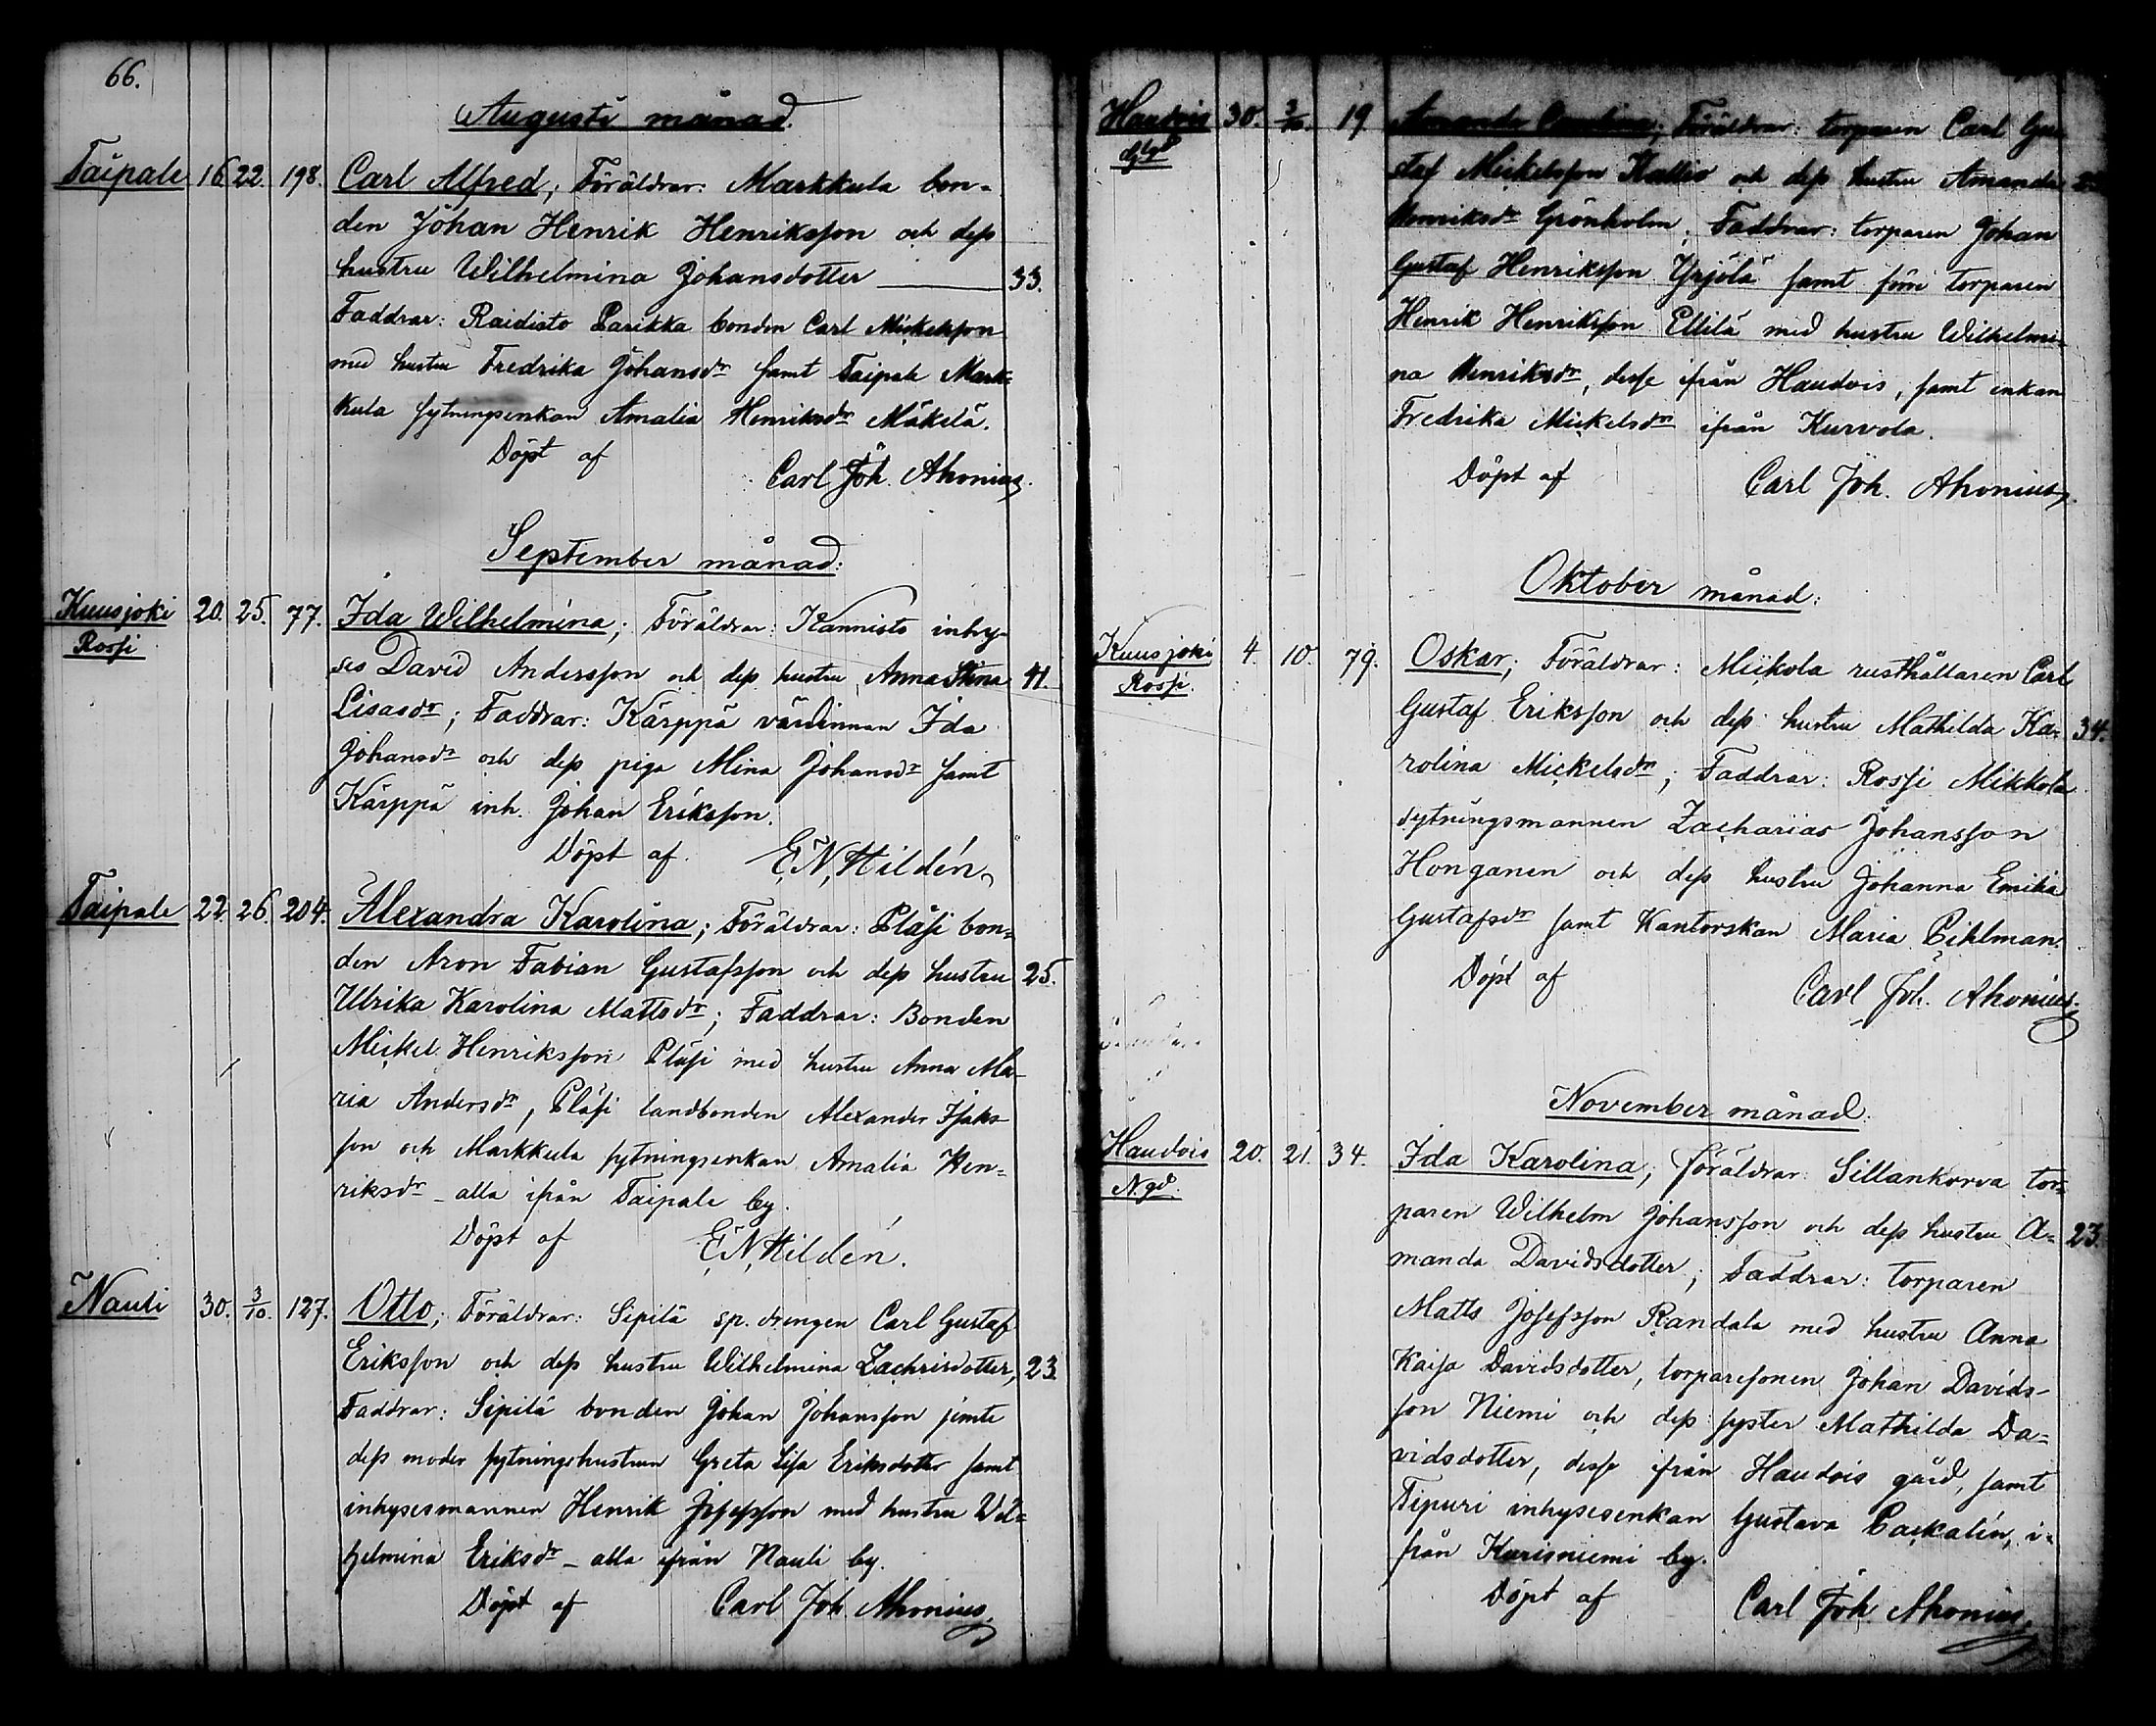 66.
Augusti månad.
Taipale 16 22. 198. Carl Alfred; Föräldrar: Markkula bon-
den Johan Henrik Henriksson och dess
hustru Wilhelmina Johansdotter 33.
Faddrar: Raidisto Parikka bonden Carl Mickelsson
med hustru Fredrika Johansdr samt Taipale Mark-
kula sytningsenkan Amalia Henriksdr Mäkelä.
Döpt af Carl Joh. Ahonius.
September månad:
Kuusjoki 20. 25. 77. Ida Wilhelmina; Föräldrar: Kannisto inhy-
Rossi
ses David Andersson och dess hustru Anna Stina 41.
Lisasdr; Faddrar: Kärppä värdinnan Ida
Johansdr och dess piga Mina Johansdr samt
Kärppä inh. Johan Eriksson.
Döpt af. E. N. Hildén.
Taipale 22. 26. 204. Alexandra Karolina; Föräldrar: Pläsi bon-
den Aron Fabian Gustafsson och dess hustru 25.
Ulrika Karolina Mattsdr; Faddrar: Bonden
Mickel Henriksson Pläsi med hustru Anna Ma-
ria Andersdr, Pläsi landbonden Alexander Isaks-
son och Markkula sytningsenkan Amalia Hen-
riksdr - alla ifrån Taipale by.
Döpt af E. N. Hildén.
Nauli 30. 3/10. 127. Otto; Föräldrar: Sipilä sp. drengen Carl Gustaf
Eriksson och dess hustru Wilhelmina Zachrisdotter, 23.
Faddrar: Sipilä bonden Johan Johansson jemte
dess moder sytningshustrun Greta Lisa Eriksdotter samt
inhysesmannen Henrik Josefsson med hustru Vil-
helmina Eriksdr - alla ifrån Nauli by.
Döpt af Carl Joh. Ahonius.
Haudois 30. 3/10. 19 Amanda Carolina; Föräldrar: torparen Carl Gu-
staf Mickelsson Kallio och dess hustru Amanda
Henriksdr Grönholm; Faddrar: torparen Johan
Gustaf Henriksson Yrjölä samt förre torparen
Henrik Henriksson Ellilä med hustru Wilhelmi-
na Henriksdr, desse ifrån Haudois, samt enkan
Fredrika Mickelsdr ifrån Kurvola.
Döpt af Carl Joh. Ahonius.
Oktober månad:
Kuusjoki 4. 10. 79. Oskar; Föräldrar: Mikola rusthållaren Carl
Rossi.
Gustaf Eriksson och dess hustru Mathilda Ka- 34.
rolina Mickelsdr; Faddrar: Rossi Mikkola
sytningsmannen Zacharias Johansson
Honganen och dess hustru Johanna Emilia
Gustafsdr samt Kantorskan Maria Pihlman.
Döpt af Carl Joh. Ahonius.
November månad.
Haudois 20. 21. 34. Ida Karolina; föräldrar: Sillankorva tor-
N. gd.
paren Wilhelm Johansson och dess hustru A- 23.
manda Davidsdotter; Faddrar: torparen
Matts Josefsson Randala med hustru Anna
Kaisa Davidsdotter, torparesonen Johan Davids-
son Niemi och dess syster Mathilda Da-
vidsdotter, desse ifrån Haudois gård, samt
Tipuri inhysesenkan Gustava Packalén, i-
från Karisniemi by.
Döpt af Carl Joh. Ahonius.